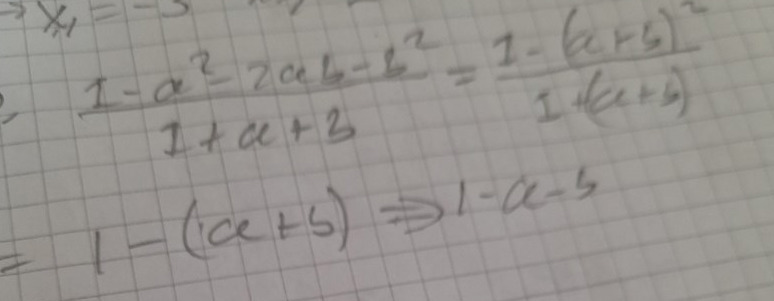 ⇒ x₁ = -3
(1 - a² - 2ab - b²)/(1 + a + b) = (1 - (a+b)²)/(1 + (a+b))
= 1 - (a+b) ⇒ 1-a-b